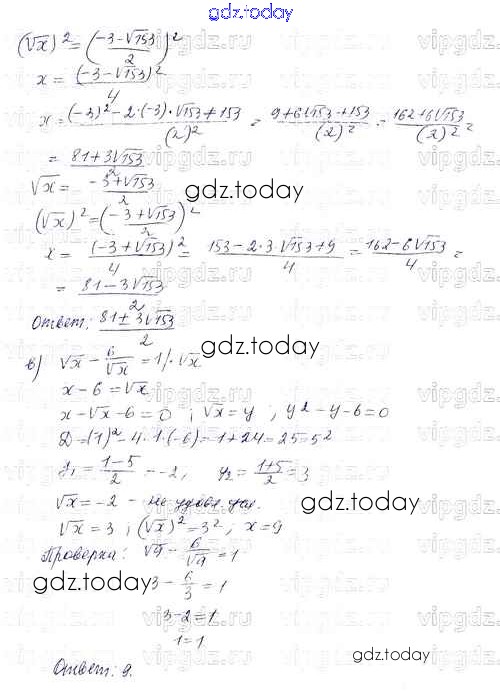 gdz.today
(√x)² = ((-3-√153)/2)²
x = (-3-√153)²/4
x = ((-3)²-2·(-3)·√153+153)/(2)² = (9+6√153+153)/(2)² = (162+6√153)/(2)² =
= (81+3√153)/2
√x = (-3+√153)/2
gdz.today
(√x)² = ((-3+√153)/2)²
x = (-3+√153)²/4 = (153-2·3·√153+9)/4 = (162-6√153)/4 =
= (81-3√153)/2
Ответ: (81±3√153)/2
gdz.today
в) √x - 6/√x = 1 /·√x
x-6=√x
x-√x-6=0 ; √x=y ; y²-y-6=0
D=(1)²-4·1·(-6)=1+24=25=5²
y₁=(1-5)/2=-2, y₂=(1+5)/2=3
√x=-2 - не удовл. усл.
gdz.today
√x=3 ; (√x)²=3² ; x=9
Проверка: √9 - 6/√9 = 1
gdz.today
3 - 6/3 = 1
3-2=1
1=1
gdz.today
Ответ: 9.